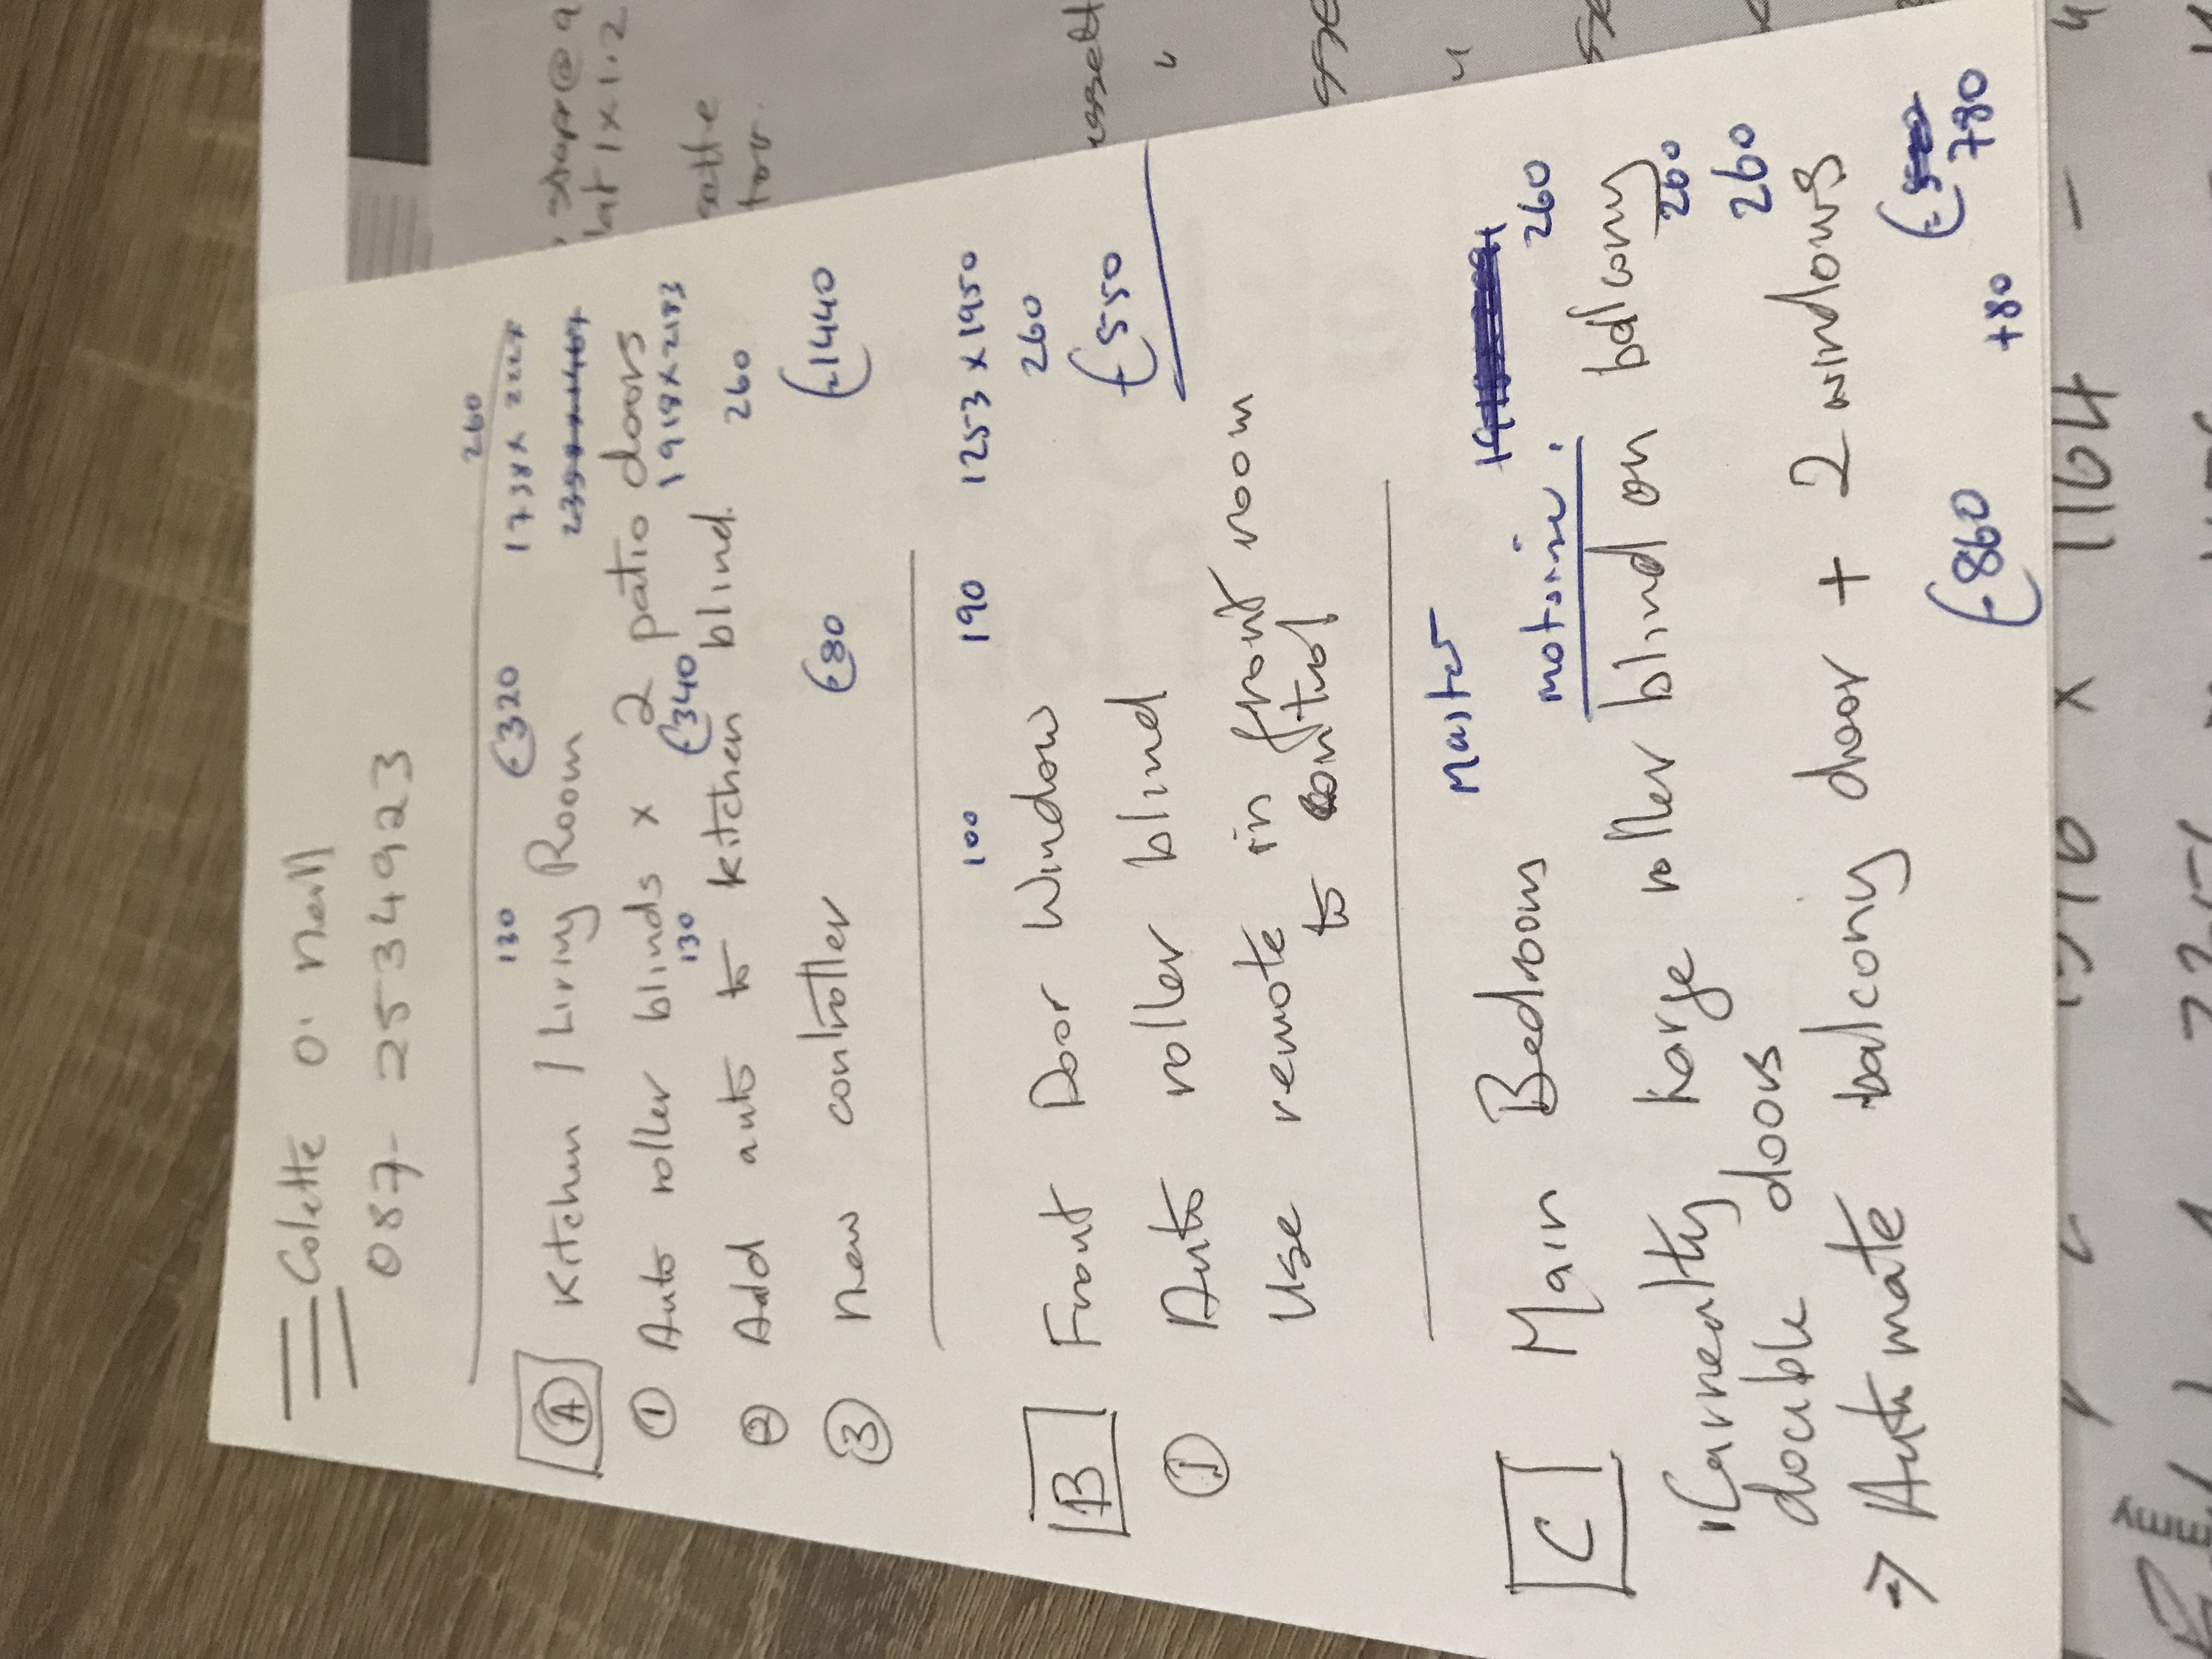 Colette O' Neill
087- 2534923
260
130 €320 1738 x 2227
A Kitchen / Living Room
① Auto roller blinds x 2 patio doors
130 €340 1918 x 2183
② Add auto to kitchen blind. 260
③ New controller €80 €1440
100 190 1253 x 1950
B Front Door Window 260
① Auto roller blind €550
Use remote in front room
to control
Master
C Main Bedroom motorise: 260
"Currently large roller blind on balcony
double doors 260
260
→ Automate balcony door + 2 windows
€860 +80 780
shape@a
lat 1 x 1.2
x 1164 -